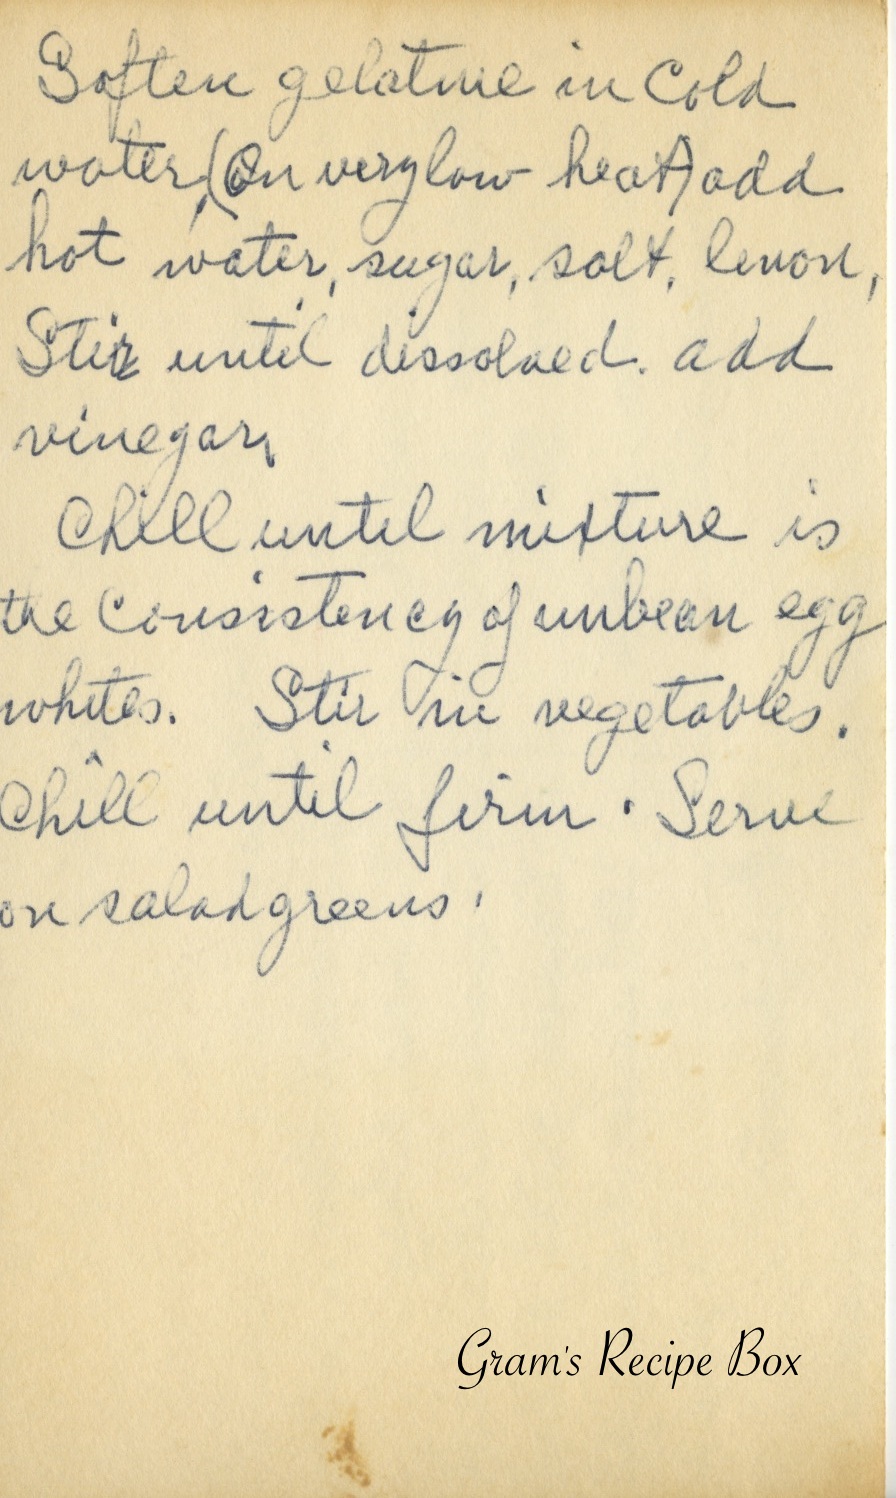 Soften gelatine in Cold
water, (On very low heat) add
hot water, sugar, salt, lemon,
Stir until dissolved. add
vinegar,
Chill until mixture is
the Consistency of unbean egg
whites. Stir in vegetables.
Chill until firm. Serve
on salad greens.
Gram's Recipe Box